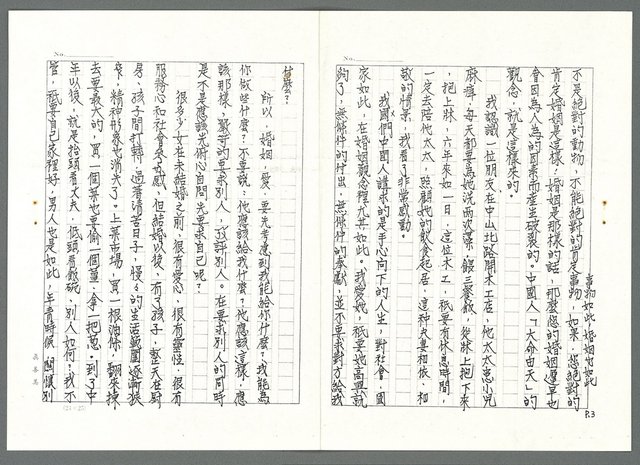 事物如此,婚姻如此
P.3
不是絕對的動物,不能絕對的肯定事物,如果,您絕對的
肯定婚姻是這樣,婚姻是那樣的話,那麼您的婚姻遲早也
會因為人為的因素而產生破裂的。中國人「大命由天」的
觀念,就是這樣來的。
我認識一位朋友,在中山北路開木工店,他太太患小兒
麻痺,每天都要為她洗兩次澡,餵三餐飯,從床上抱下來
,抱上床,六年來如一日,這位木工,祇要有休息時間,
一定去陪他太太,照顧她的飲食起居,這種夫妻相依、相
敬的情景,我看了非常感動。
我國們中國人講求的是手心向下的人生,對社會、國
家如此,在婚姻觀念裡尤其如此。我愛她,祇要她高興就
夠了,無條件的付出,無條件的奉獻,並不要求對方給我
什麼?
所以,婚姻、愛,要先考慮到我能給你什麼?我能為
你做些什麼?不要說:他應該給我什麼?他應該這樣,應
該那樣,嚴苛的要求別人,批評別人。在要求別人的同時
是不是應該先捫心自問先要求自己呢?
很多少女在未結婚之前,很有愛心,很有靈性,很有
服務心和社會參與感,但結婚以後,有了孩子,整天在廚
房、孩子間打轉,過著清苦日子,慢慢的生活範圍逐漸狹
窄,精神形象也消失了。上菜市場,買一根油條,翻來揀
去要最大的,買一個菜也要偷一個薑,拿一把蔥。到了中
年以後,就是抬頭看丈夫,低頭看飯碗,別人如何?我不
管,祇要自己家裡好,男人也是如此,年青時候,關懷別
No.
No.
(24×25)